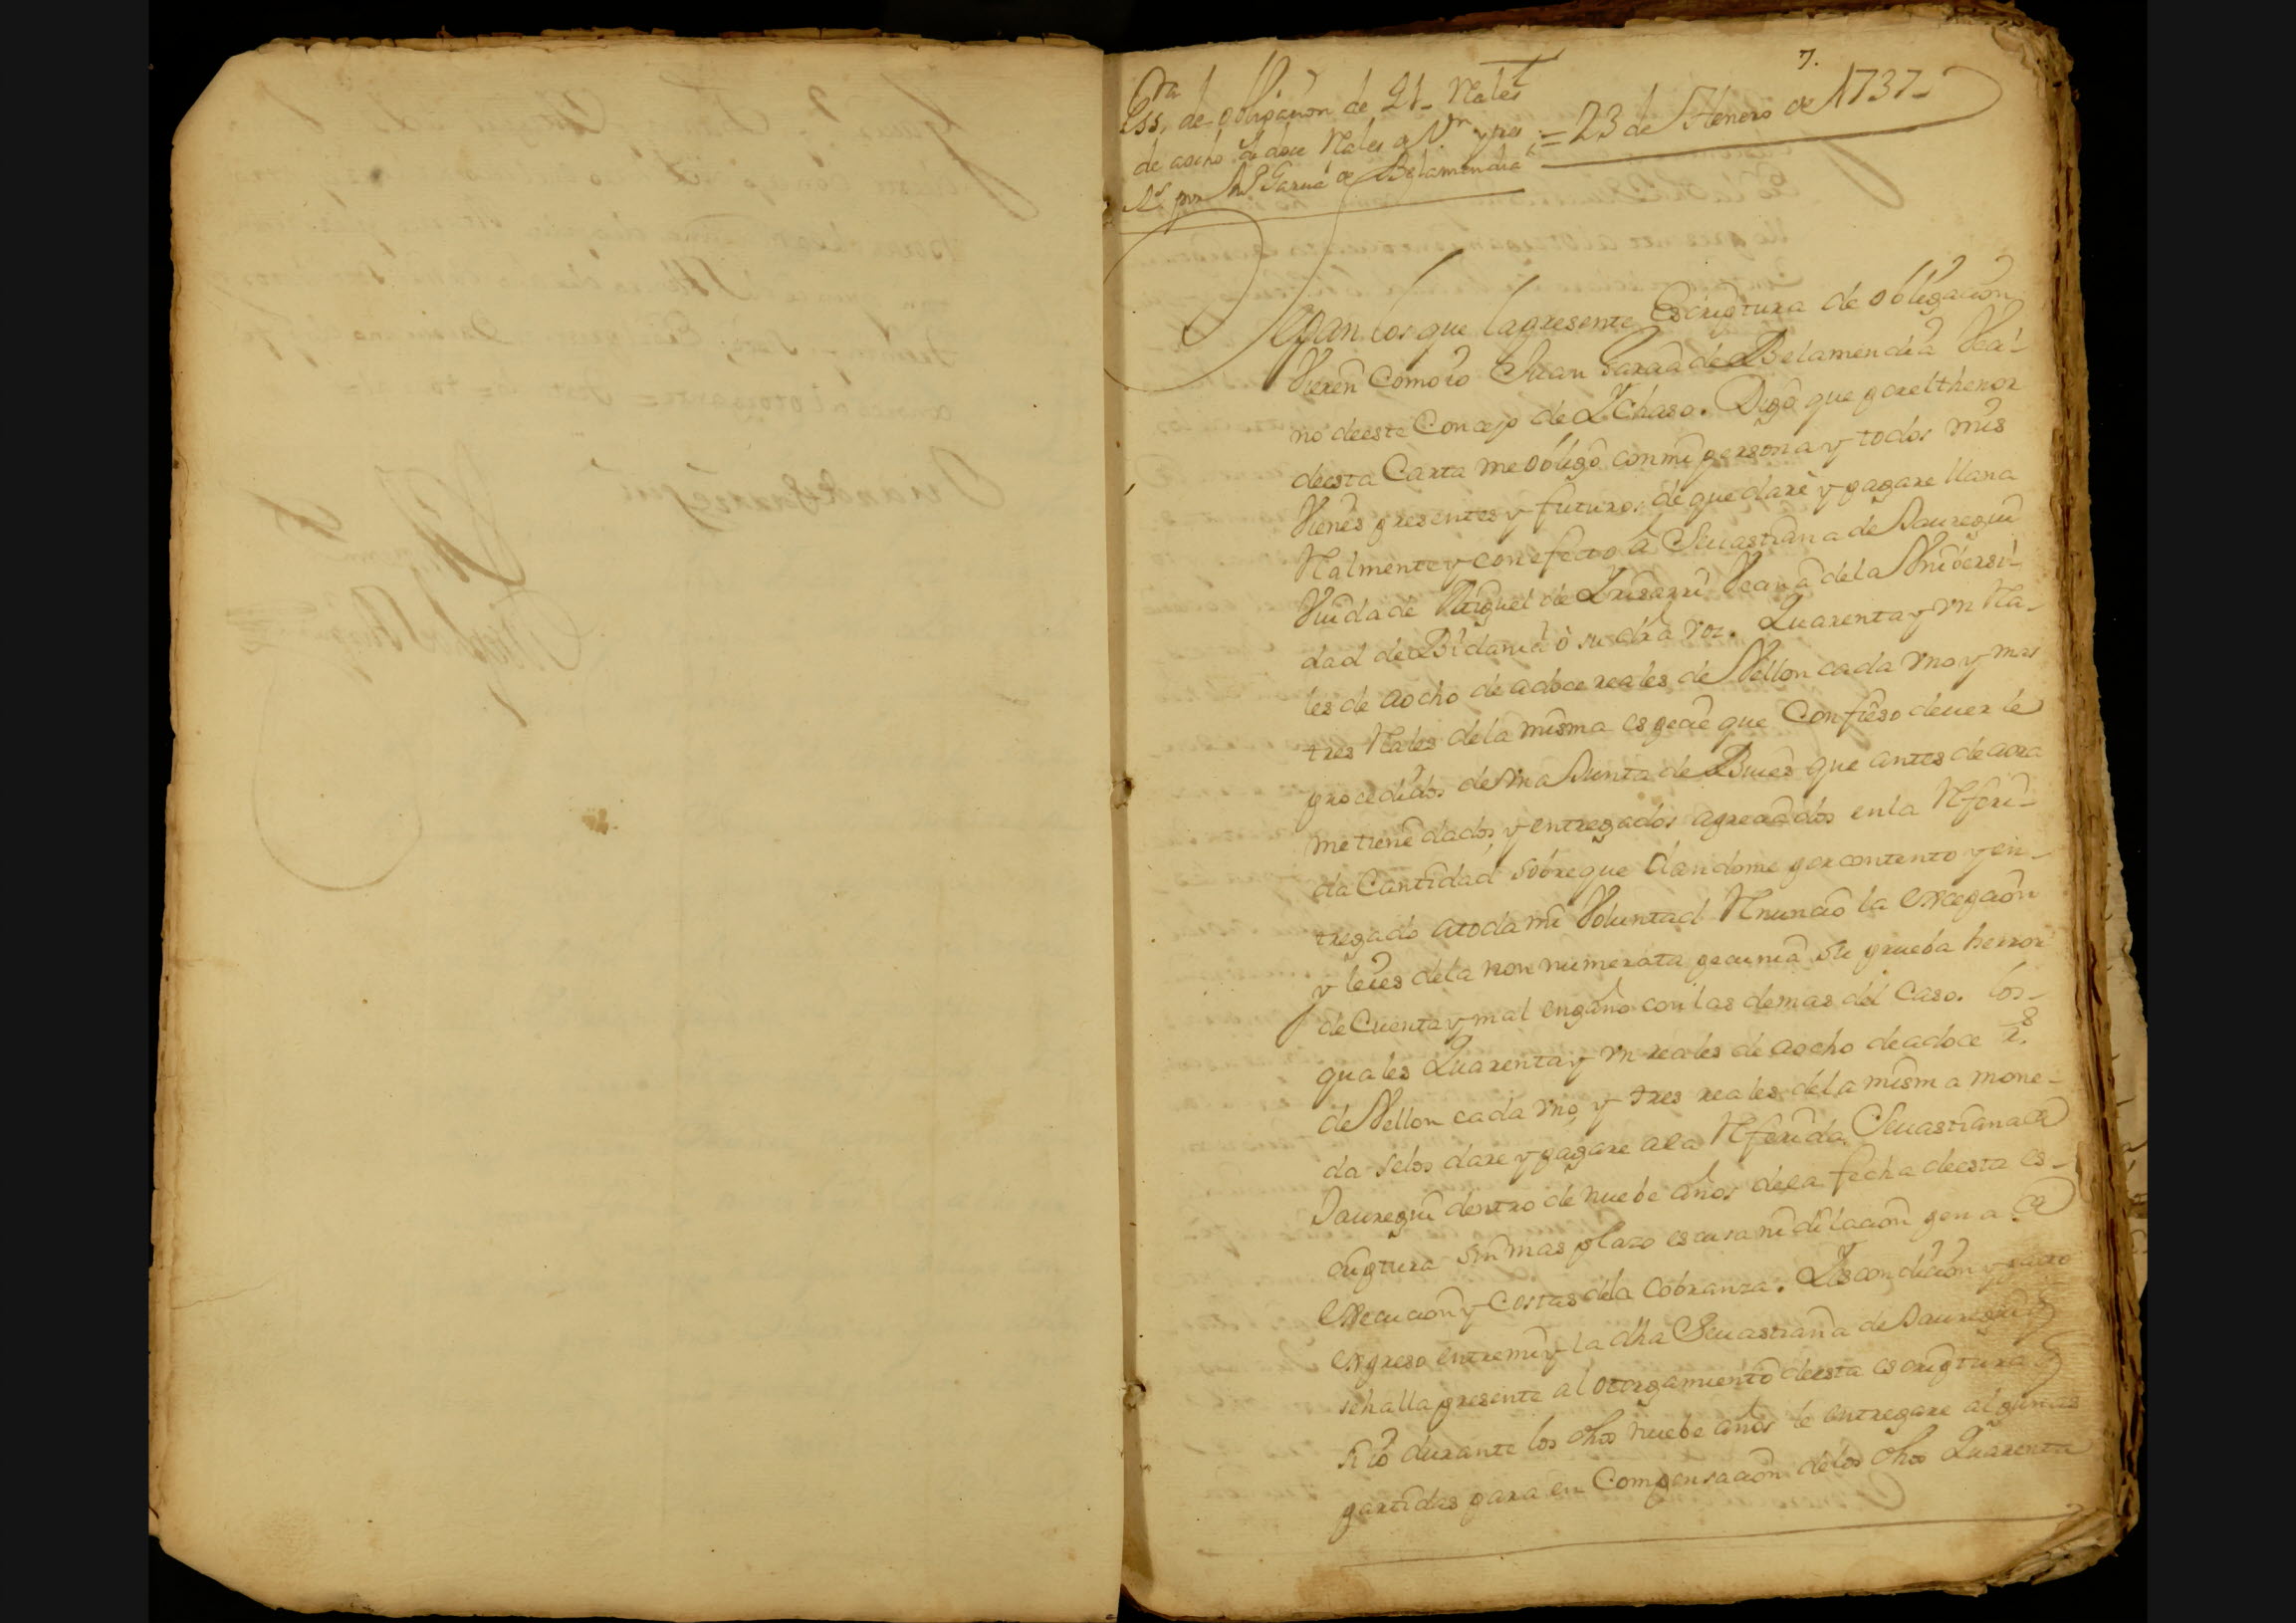 7.
Essra. de obligacion de 41. Rales
de aocho de doce Rales de Vn. y tres = 23 de Henero de 1737-
Rs. por Garcia de Belamendia
Sepan los que la presente Escriptura de obligacion
Vieren como io Juan Garcia de Belamendia Veci-
no de este Concejo de Ychaso. Digo que por el thenor
de esta Carta me obligo con mi persona y todos mis
Vienes presentes y futuros, de que daré y pagare llana
Realmente y con efecto à Seuastiana de Jauregui
Viuda de Miguel de Vecina de la Vniversi-
dad de Bidania ò su dra voz. Quarenta y vn Rea-
les de aocho de adoce reales de Vellon cada vno y mas
tres Reales de la misma especie que Confieso deuer le
procedidos de vna Junta de Bues que antes de aora
me tiene dados, y entregados apreciados en la Referi-
da Cantidad sobre que dandome por contento y en-
tregado atoda mi Voluntad Renuncio la excepcion
y leies de la non numerata pecunia su prueba herror
de Cuenta y mal engaño con las demas del Caso. los-
quales Quarenta y vn reales de aocho de adoce rs.
de Vellon cada vno, y tres reales de la misma mone-
da selos dare y pagare ala Referida Seuastiana de
Jauregui dentro de nuebe años de la fecha de esta es-
criptura sin mas plazo escusa ni dilacion pena de
execucion y Costas de la Cobranza. Y es condicion y pacto
expreso entre mi y la dha Seuastiana de Jauregui q
se halla presente al otorgamiento de esta escriptura q
si io durante los dhos nuebe años le entregare algunas
partidas para en Compensacion de los dhos Quarenta